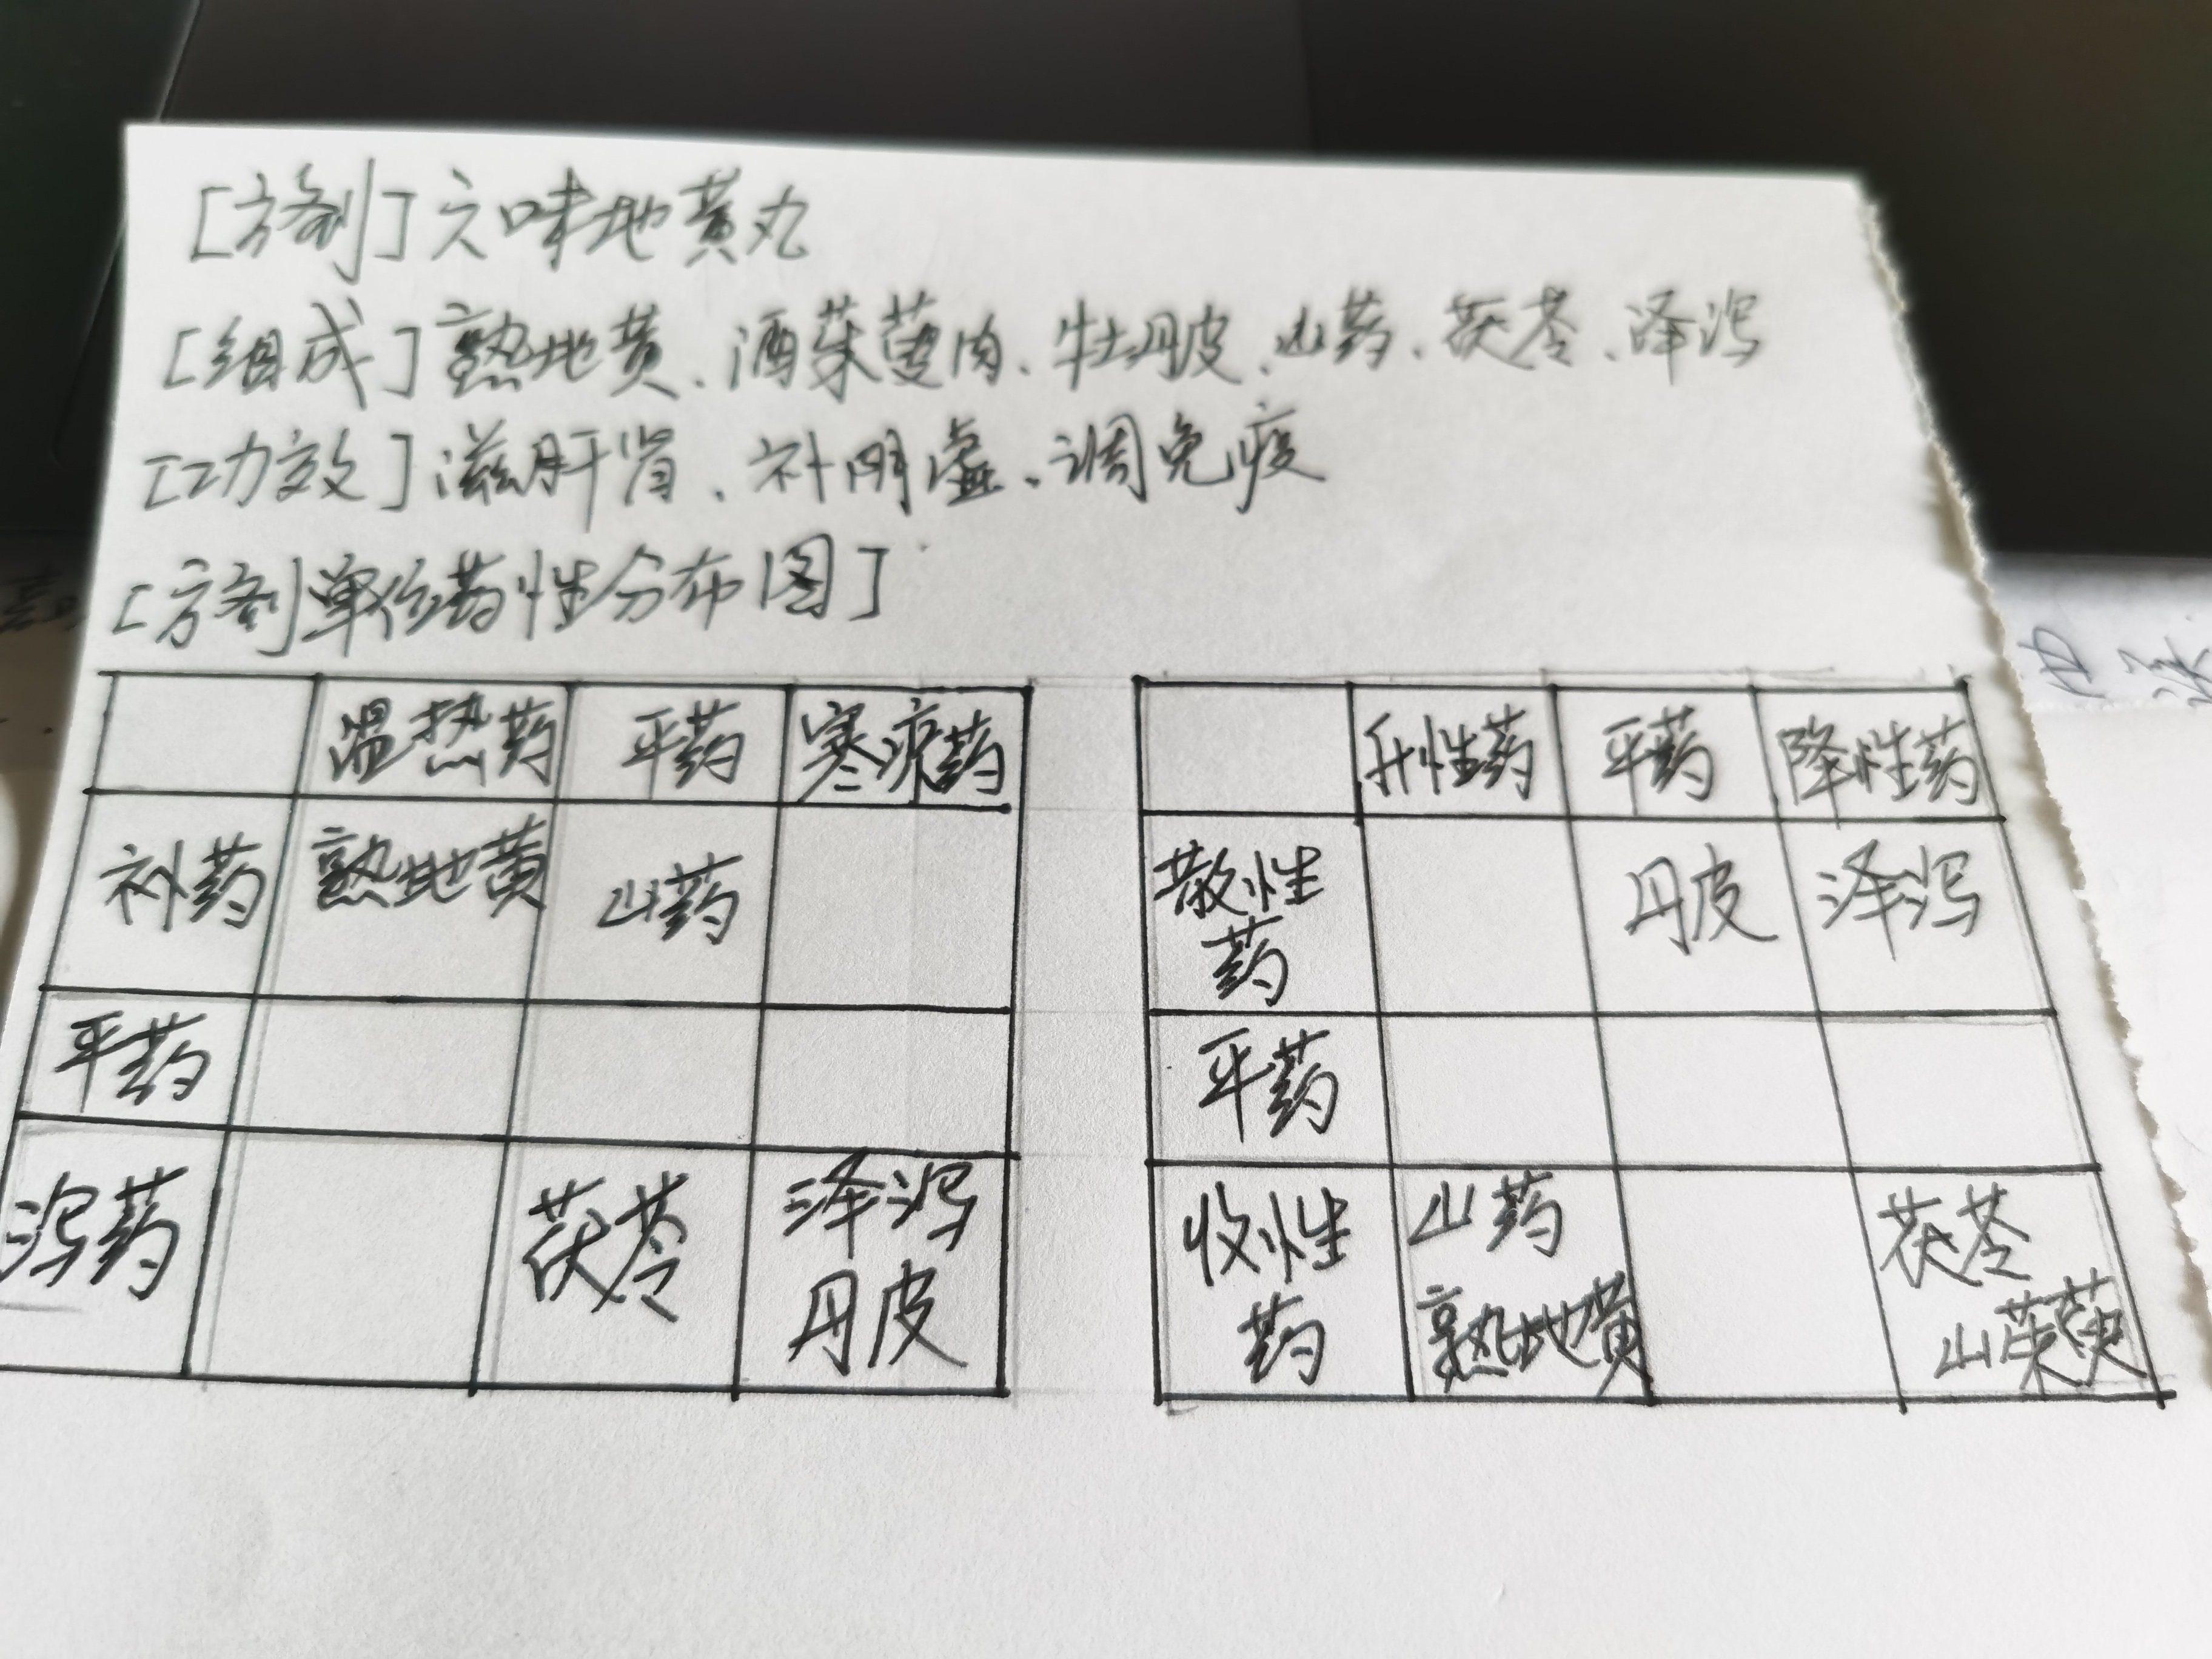 [方剂]六味地黄丸
[组成]熟地黄、酒茱萸肉、牡丹皮、山药、茯苓、泽泻
[功效]滋肝肾、补阴虚、调免疫
[方剂单位药性分布图]
温热药 平药 寒凉药
补药 熟地黄 山药
平药
泻药 茯苓 泽泻
丹皮
升性药 平药 降性药
散性 丹皮 泽泻
药
平药
收性 山药 茯苓
药 熟地黄 山茱萸